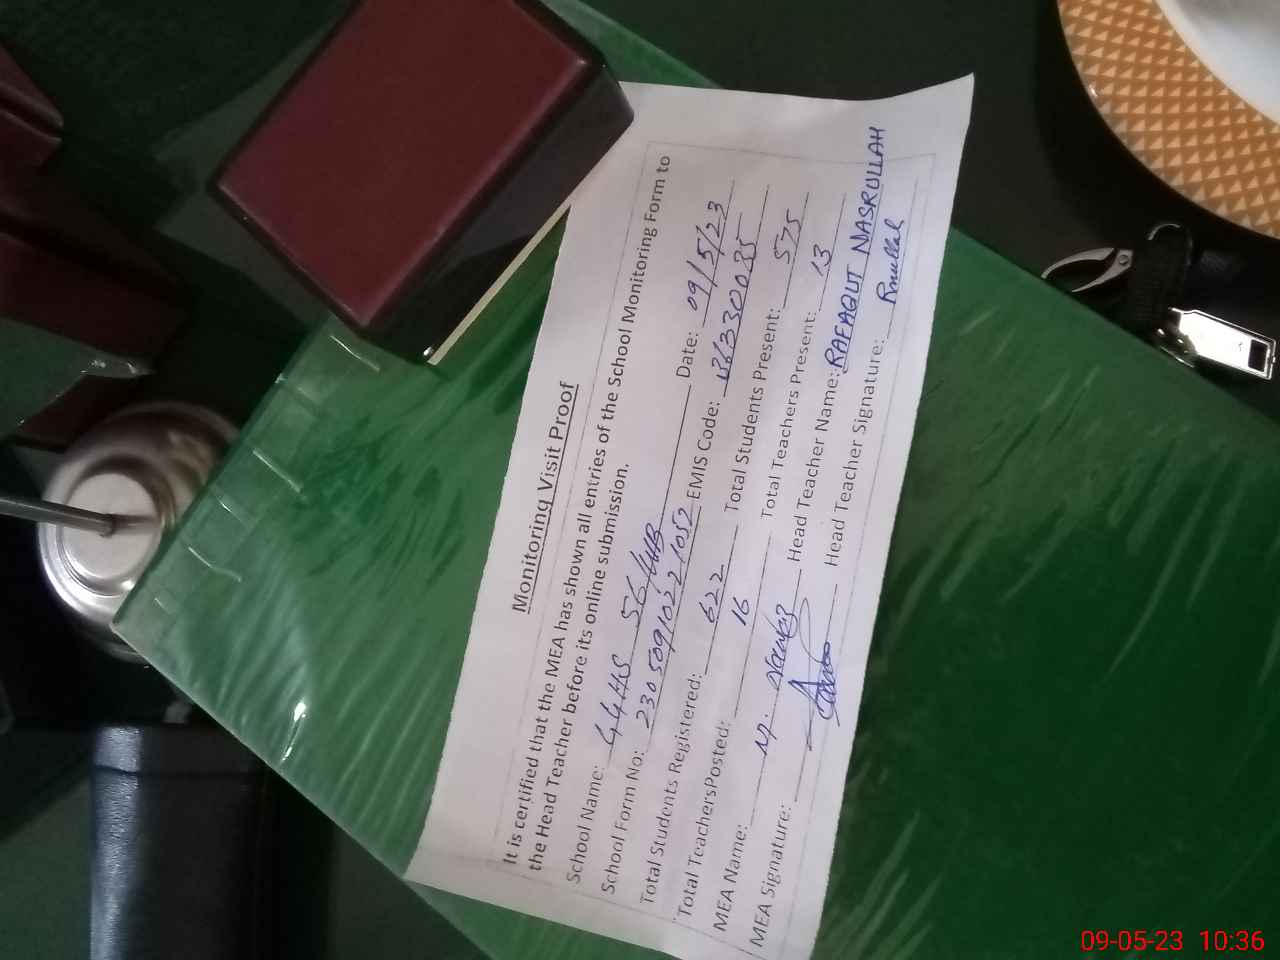 Monitoring Visit Proof
It is certified that the MEA has shown all entries of the School Monitoring Form to
the Head Teacher before its online submission.
School Name: GGHS 56/WB Date: 09/5/23
School Form No: 23050910221052 EMIS Code: 36330035
Total Students Registered: 622 Total Students Present: 575
Total TeachersPosted: 16 Total Teachers Present: 13
MEA Name: M. Nawaz Head Teacher Name: RAFAQUT NASRULLAH
MEA Signature: Head Teacher Signature: Rnullah
09-05-23 10:36